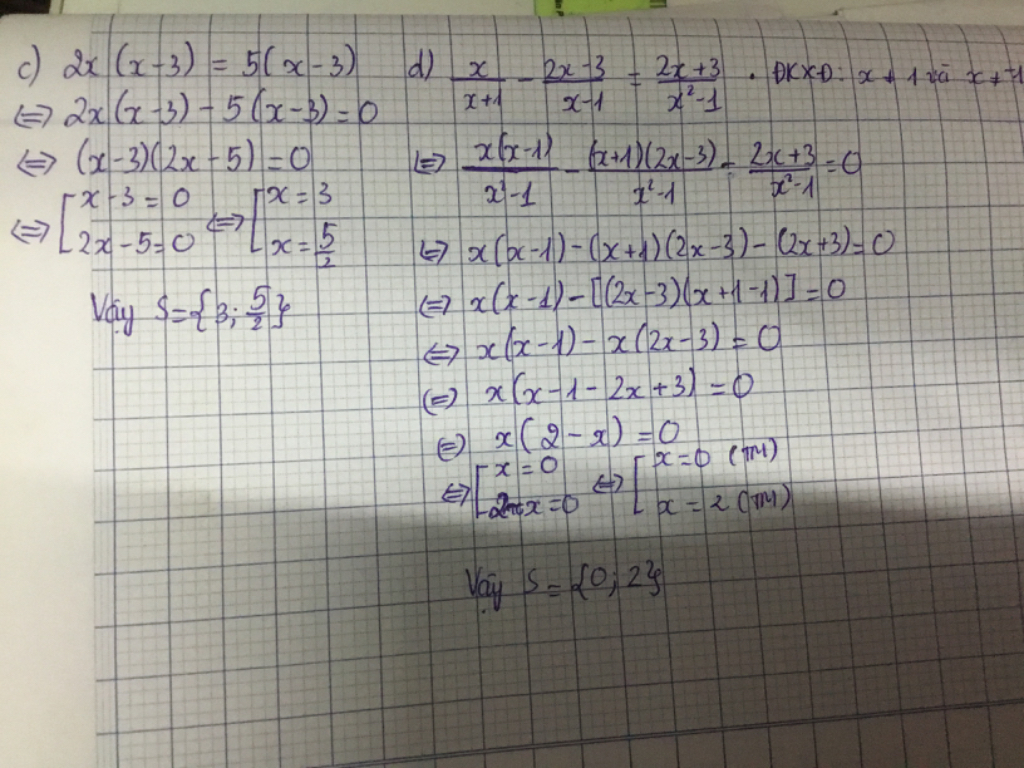 c) 2x (x-3) = 5(x-3)
⇔ 2x(x-3) - 5(x-3) = 0
⇔ (x-3)(2x-5) = 0
⇔ [x-3 = 0 ⇔ [x = 3
2x-5=0 x = 5/2
Vậy S={3; 5/2}
d) x/(x+1) - (2x-3)/(x-1) = (2x+3)/(x²-1) . ĐKXĐ: x ≠ 1 và x ≠ -1
⇔ x(x-1)/(x²-1) - (x+1)(2x-3)/(x²-1) - (2x+3)/(x²-1) = 0
⇔ x(x-1) - (x+1)(2x-3) - (2x+3) = 0
⇔ x(x-1) - [(2x-3)(x+1-1)] = 0
⇔ x(x-1) - x(2x-3) = 0
⇔ x(x-1-2x+3) = 0
⇔ x(2-x) = 0
⇔ [x = 0 ⇔ [x=0 (TM)
2-x=0 x = 2 (TM)
Vậy S = {0; 2}